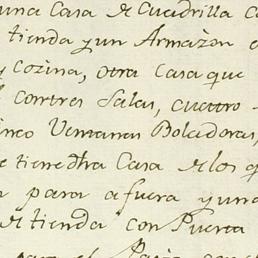 una Casa de Cuadrilla c
tienda y un Armazon
y cozina, otra Casa que
con tres Salas, cuatro
inco Ventanas Boladoras,
e tiene otra Casa de los q
para afuera y una
de tienda con Puerta
para el